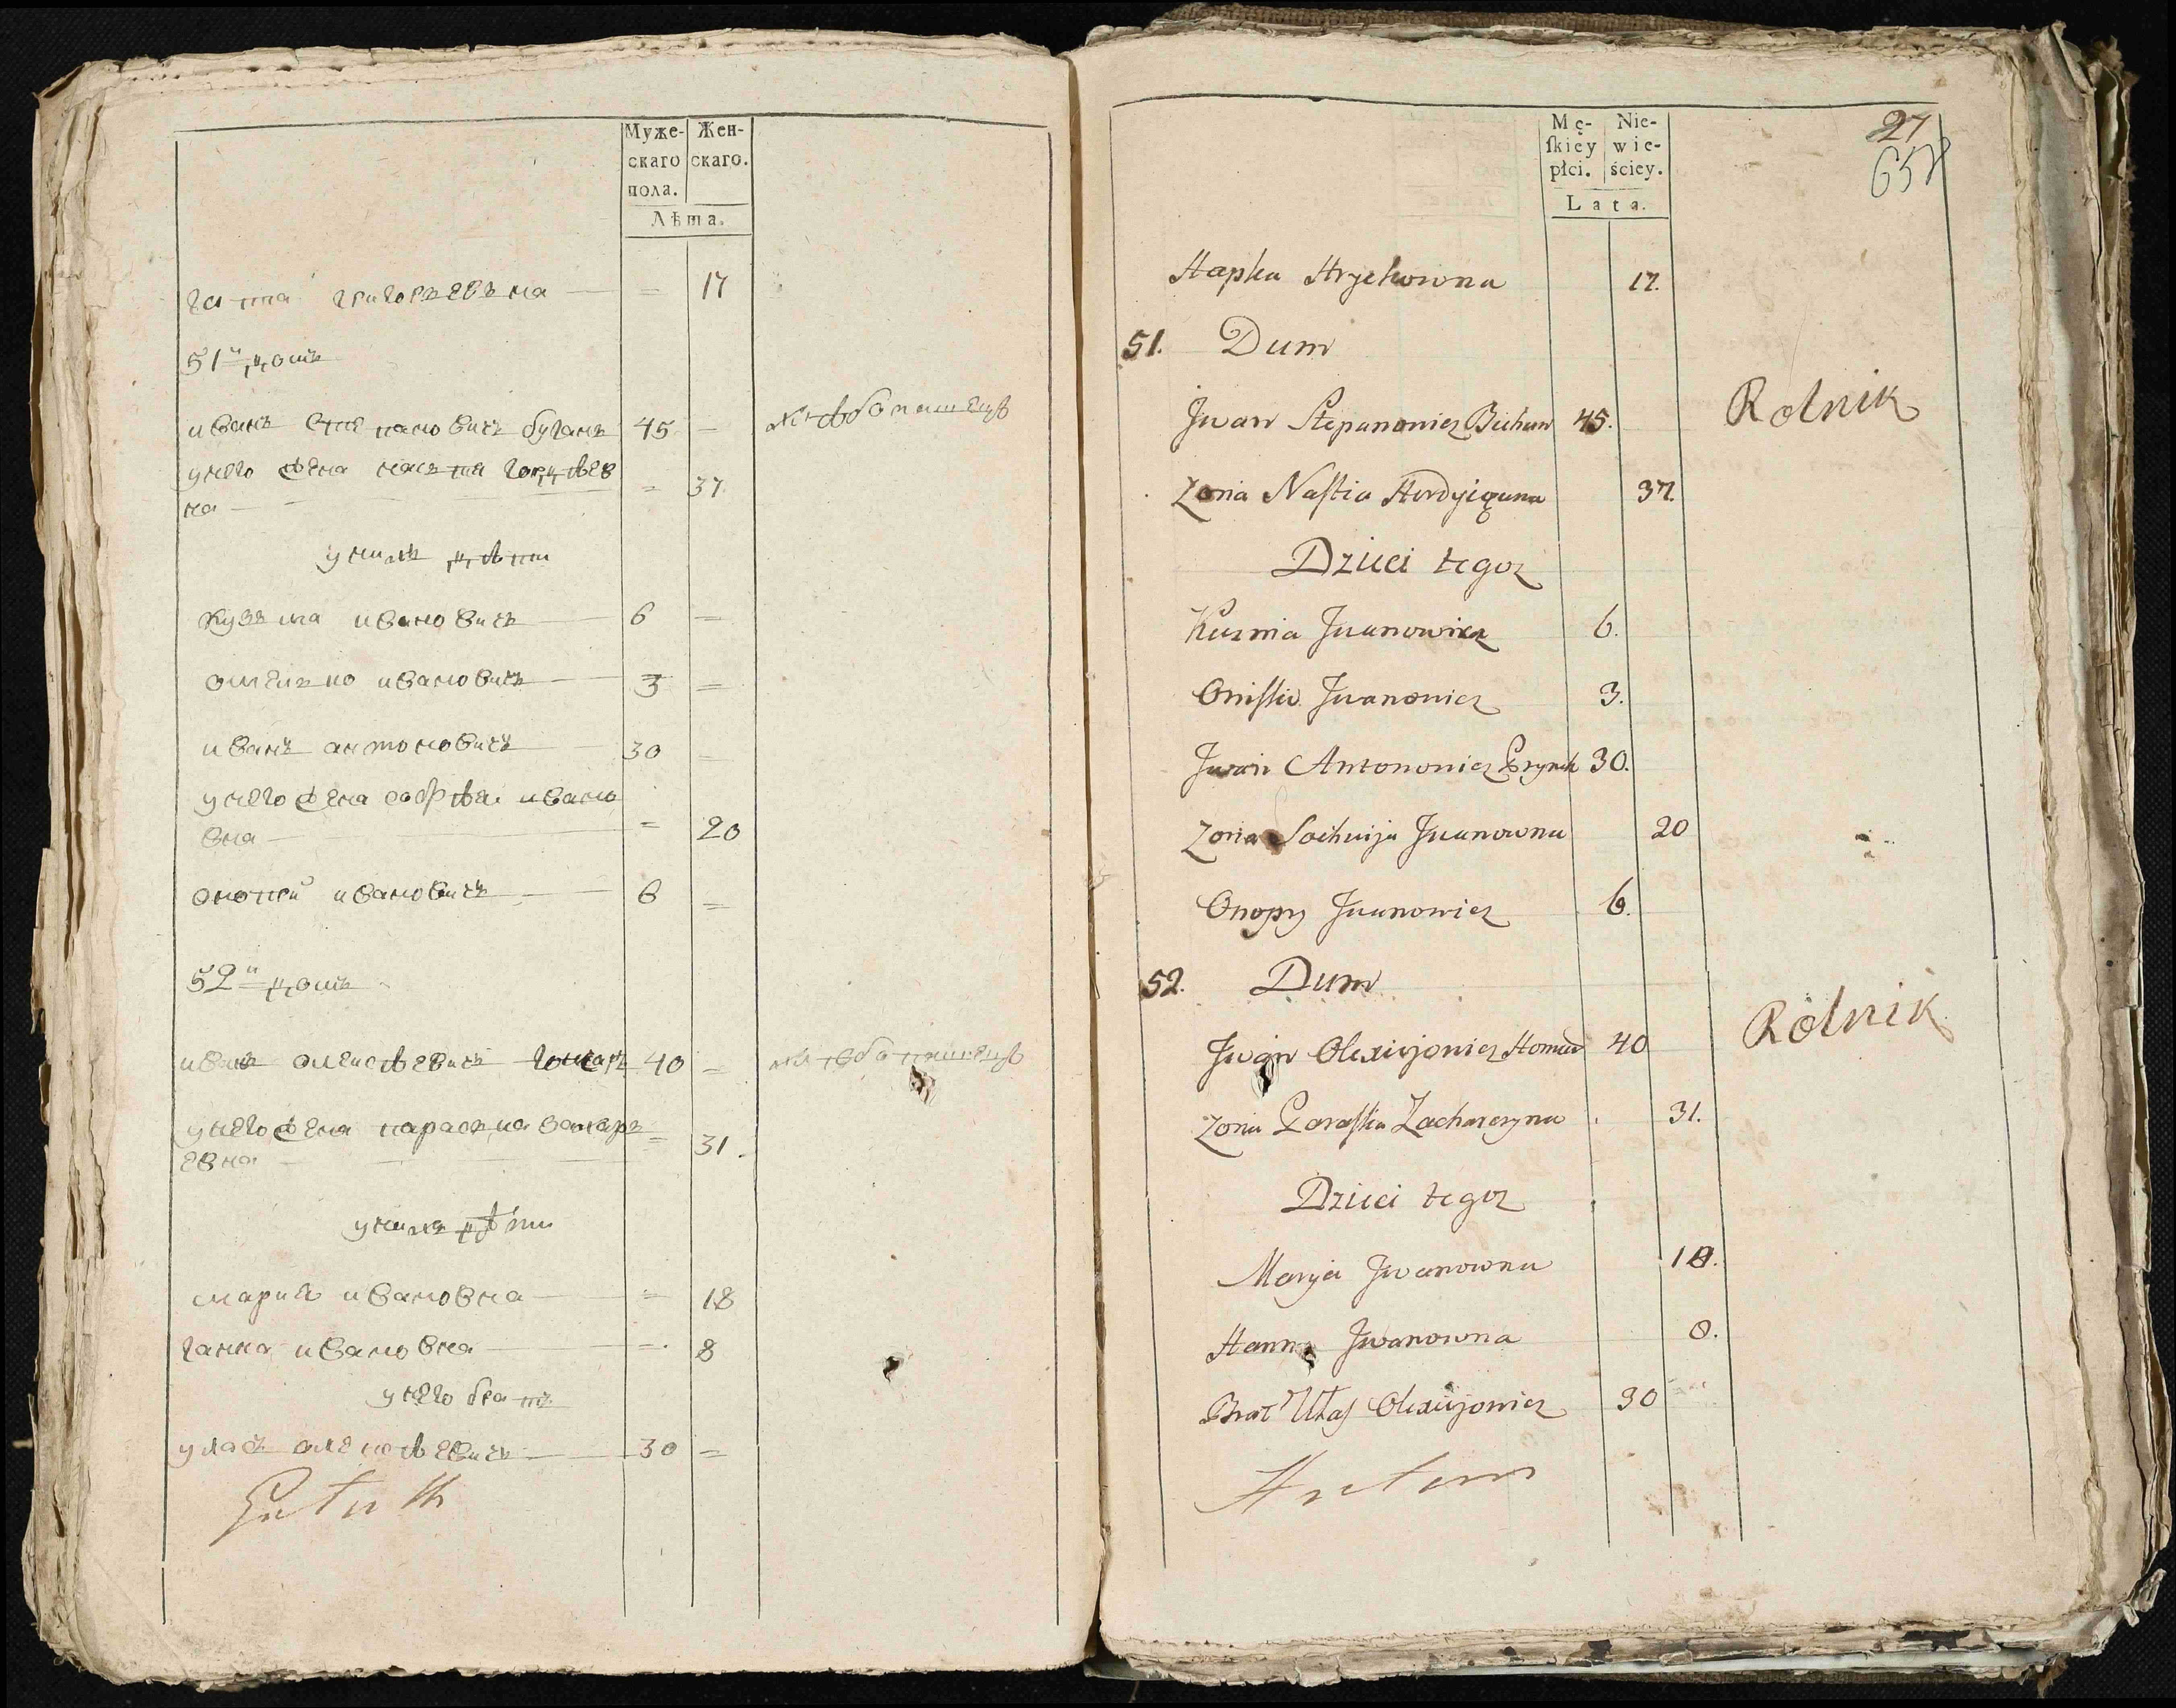 Муже-
скаго
пола.
Жен-
скаго.
Лѣта.
гапка григорьевна 17
51й домъ
иванъ степановичъ буганъ 45 хлѣбопашецъ
унего жена настя гордѣев
на 37
унихъ дѣти
кузьма ивановичъ 6
омелько ивановичъ 3
иванъ антоновичъ 30
унего жена софѣя ивано
вна 20
онопрй ивановичъ 6
52й домъ
иванъ олексѣевичъ гомар 40 хлѣбопашецъ
унего жена параска захарь
евна 31
унихъ дѣти
мария ивановна 18
ганна ивановна 8
унего братъ
уласъ олексѣевичъ 30
27
658
Mę-
ſkiey
płci.
Nie-
wie-
ściey.
Lata.
Hapka Hryhorowna 17.
51. Dum
Jwan Stepanowicz Buhan 45. Rolnik
Zona Naſtia Hordyiewna 37.
Dzieci tegoz
Kuzma Jwanowicz 6.
Jwanowicz 3.
Jwan Antonowicz 30.
Zona Jwanowna 20
Onopry Jwanowicz 6.
52. Dum
Jwan Olexiijowicz 40 Rolnik
Zona Paraſka Zacharczyna 31.
Dzieci tegoz
Marya Jwanowna 18.
Hanna Jwanowna 8.
Brat Ułas Olexiijowicz 30